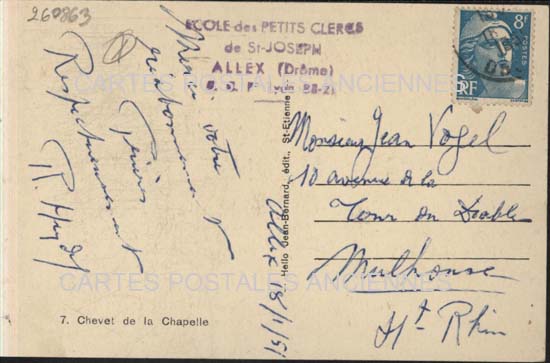 260863
ECOLE des PETITS CLERCS
de St-JOSEPH
ALLEX (Drôme)
Merci
votre
Prières
Respectueusement
R.
Allex 18/1/51
Hélio Jean-Bernard, édit., St-Etienne
8F
RF
POSTES
Monsieur Jean Vogel
10 avenue de la
Tour du Diable
Mulhouse
Ht Rhin
7. Chevet de la Chapelle
CARTES POSTALES ANCIENNES
CARTES POSTALES ANCIENNES